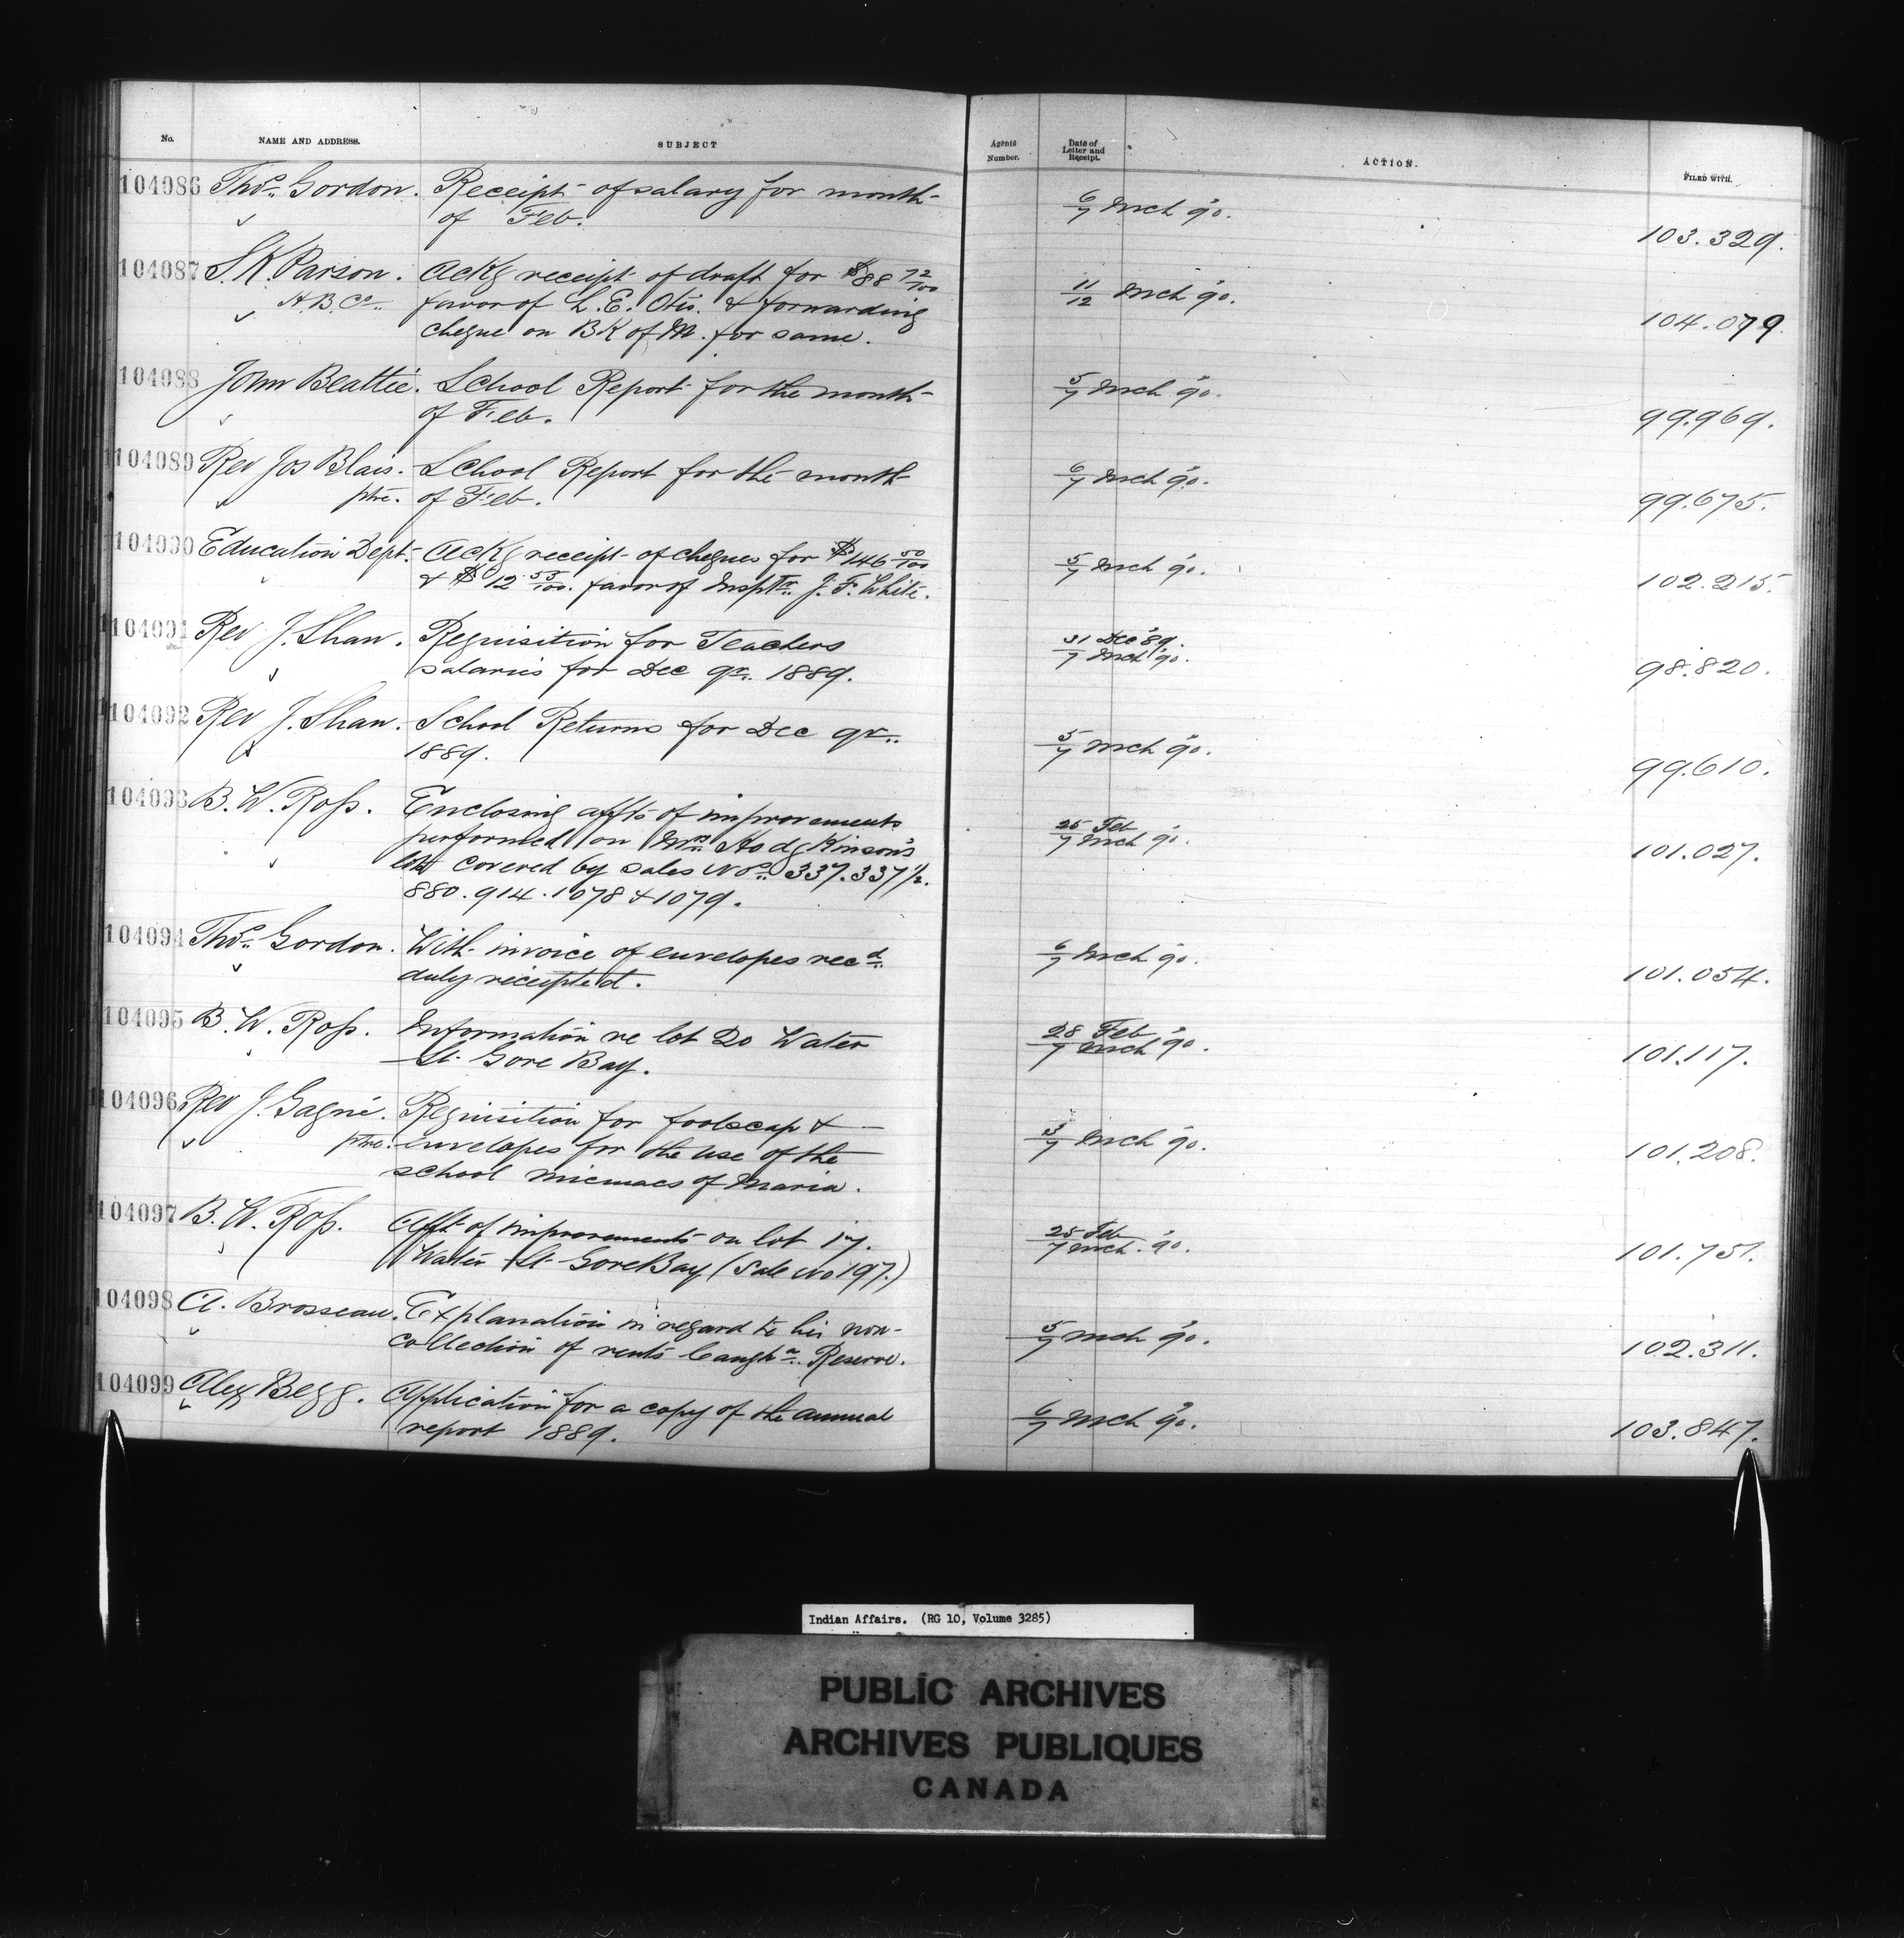 No. NAME AND ADDRESS. SUBJECT Agents Number. Date of Letter and Receipt. ACTION. FILED WITH.
104086 Thos. Gordon. Receipt of salary for month
of Feb. 6/7 Mch '90. 103.329.
104087 S.K. Parson. Ackg receipt of draft for $88 72/100
H.B.Co. favor of L.E. Otis. & forwarding 11/12 Mch '90. 104.079
cheque on BK of M. for same.
104088 John Beattie. School Report for the month
of Feb. 5/7 Mch '90. 99.969.
104089 Rev Jos Blais. School Report for the month
ptre. of Feb. 6/7 Mch '90. 99.675.
104090 Education Dept. Ackg receipt of cheques for $146 50/100
& $12 53/100. favor of Insptr. J.F. White. 5/7 Mch '90. 102.215.
104091 Rev J. Shaw. Requisition for Teachers 31 Dec '89.
salaries for Dec qr. 1889. 7 Mch '90. 98.820.
104092 Rev J. Shaw. School Returns for Dec qr.
1889. 5/7 Mch '90. 99.610.
104093 B.W. Ross. Enclosing affts of improvements 25 Feb
performed on Mrs. Hodgkinson's 7 Mch '90. 101.027.
lots covered by sales Nos. 337. 337 1/2.
880. 914. 1078 & 1079.
104094 Thos. Gordon. With invoice of envelopes recd.
duly receipted. 6/7 Mch '90. 101.054.
104095 B.W. Ross. Information re lot 20 Water 28 Feb
St. Gore Bay. 7 Mch '90. 101.117.
104096 Rev J. Gagné. Requisition for foolscap &
ptre. envelopes for the use of the 3/7 Mch '90. 101.208.
school micmacs of Maria.
104097 B.W. Ross. Afft of improvements on lot 17. 25 Feb
Water St. Gore Bay (Sale No 197.) 7 Mch. '90. 101.751.
104098 A. Brosseau. Explanation in regard to his non-
collection of rents Caughna. Reserve. 5/7 Mch '90. 102.311.
104099 Alex Begg. Application for a copy of the annual
report 1889. 6/7 Mch '90. 103.847.
Indian Affairs. (RG 10, Volume 3285)
PUBLIC ARCHIVES
ARCHIVES PUBLIQUES
CANADA